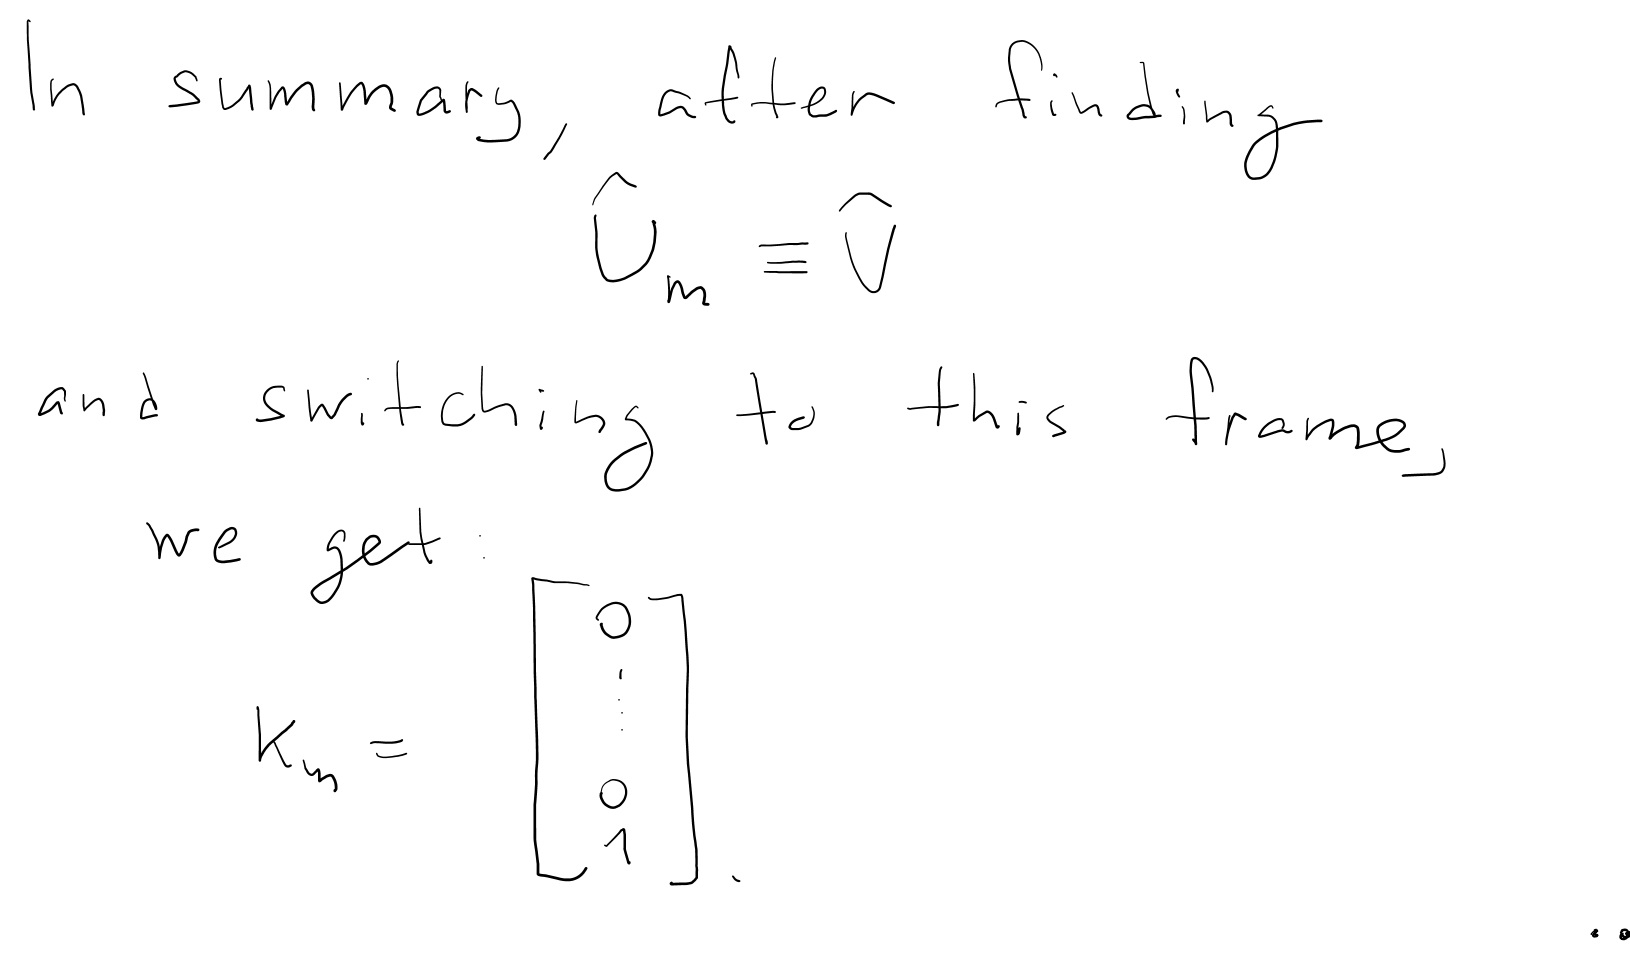 In summary, after finding
Û_m ≡ V̂
and switching to this frame,
we get:
K_m = [0 ⋮ 0 1].